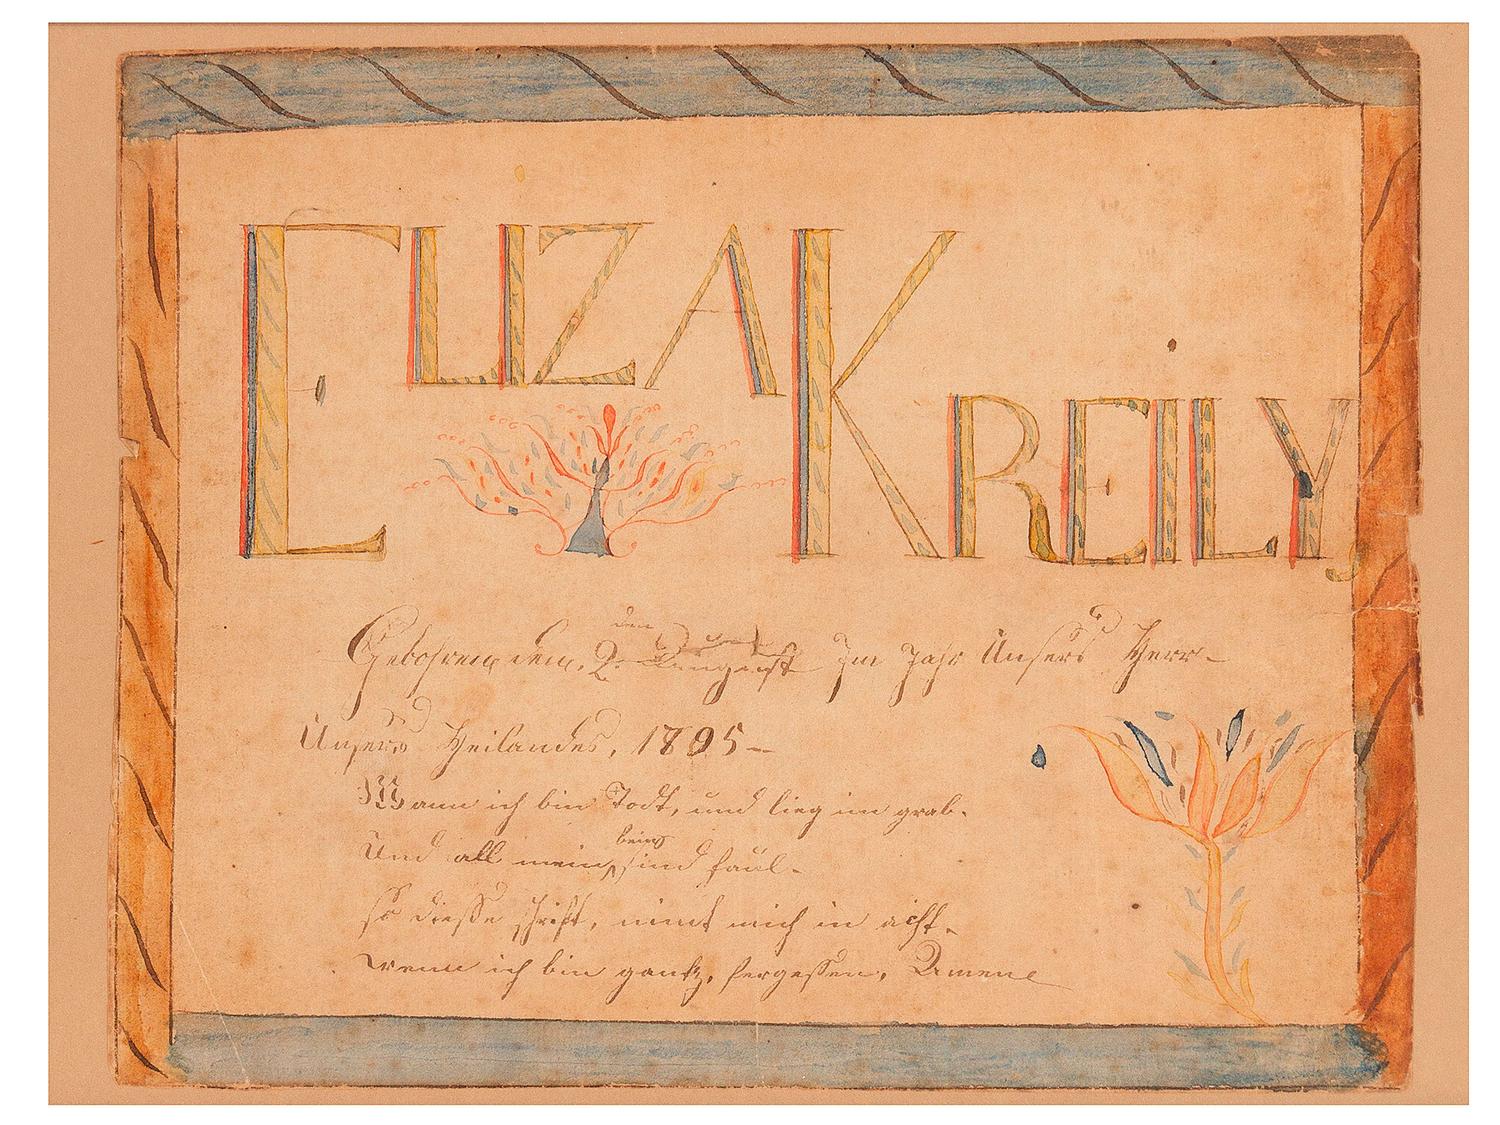 ELIZA KREILY
Gebohren den, 2. August Im Jahr Unsers Herr-
den
Unsers Heilandes, 1805-
Wann ich bin Todt, und lieg im grab.
Und all mein, beins sind faul.
so diesse schrift, nimt mich in acht.
wenn ich bin gantz, fergessen, Amene